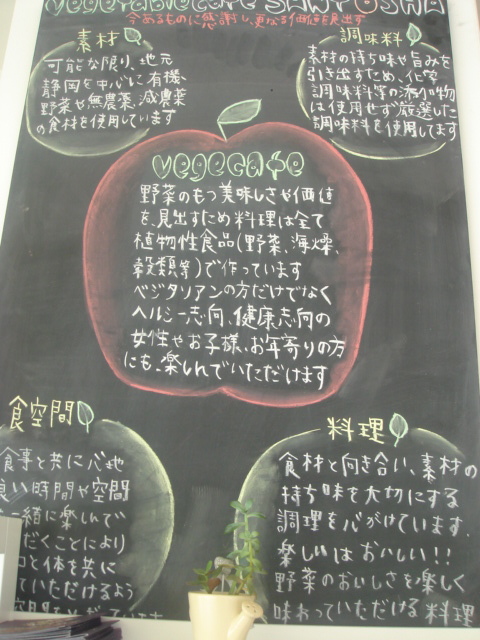 Vegetablecafe SANYOSHA
今あるものに感謝し、更なる価値を見出す
素材
可能な限り、地元
静岡を中心に有機
野菜や無農薬、減農薬
の食材を使用しています
調味料
素材の持ち味や旨みを
引き出すため、化学
調味料等の添加物
は使用せず厳選した
調味料を使用してます
vegecafe
野菜のもつ美味しさや価値
を、見出すため料理は全て
植物性食品(野菜、海燥、
穀類等)で作っています
ベジタリアンの方だけでなく
ヘルシー志向、健康志向の
女性やお子様、お年寄りの方
にも、楽しんでいただけます
食空間
食事と共に心地
良い時間や空間
一緒に楽しんで
だくことにより
と体を共に
ていただけるよう
料理
食材と向き合い、素材の
持ち味を大切にする
調理を心がけています。
楽しいはおいしい!!
野菜のおいしさを楽しく
味わっていただける料理